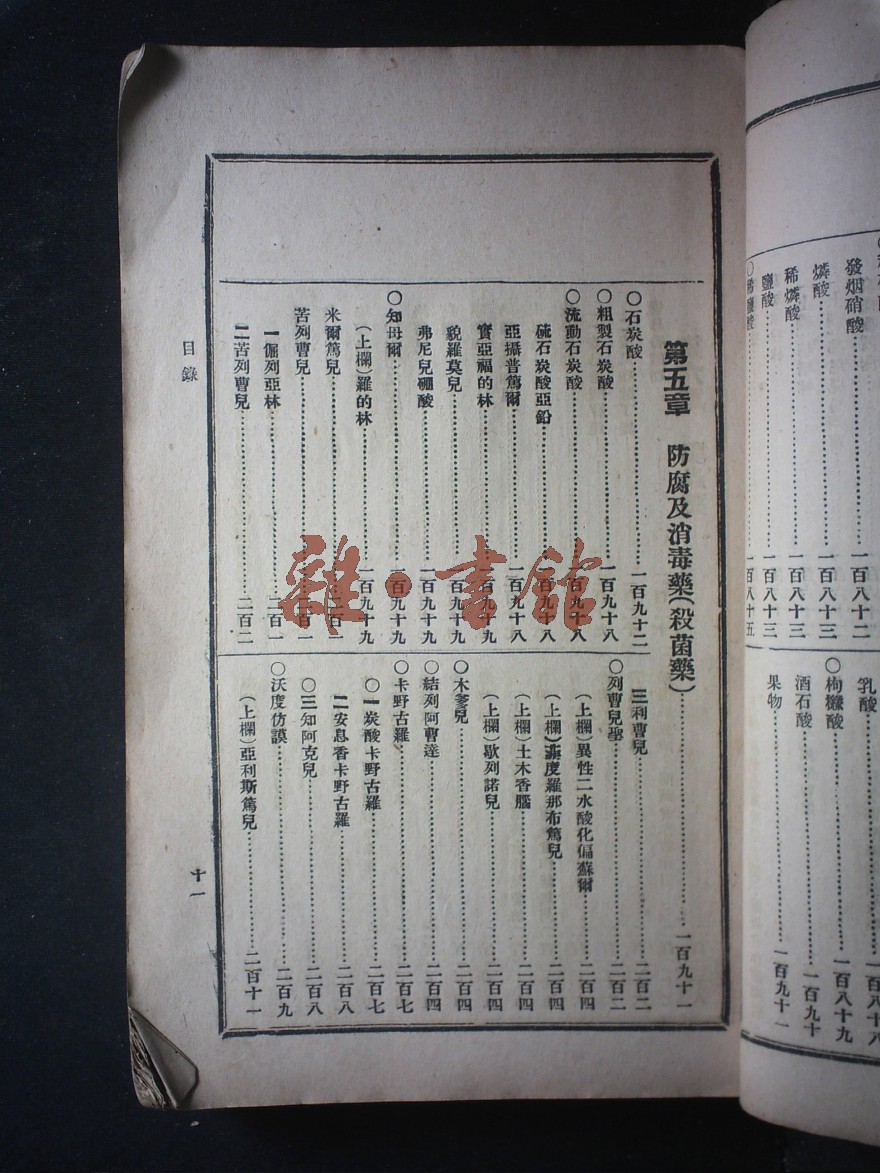 第五章　防腐及消毒藥（殺菌藥）………一百九十一
〇石炭酸………一百九十二
〇粗製石炭酸………一百九十八
〇流動石炭酸………一百九十八
硫石炭酸亞鉛………一百九十八
亞攝普篤爾………一百九十八
實亞福的林………一百九十九
貌羅莫兒………一百九十九
弗尼兒硼酸………一百九十九
〇知母爾………一百九十九
（上欄）羅的林………一百九十九
米爾篤兒………二百一
苦列曹兒………二百一
一倔列亞林………二百一
二苦列曹兒………二百二
三利曹兒………二百二
〇列曹兒聖………二百二
（上欄）異性二水酸化偏蘇爾………二百四
（上欄）菲度羅那布篤兒………二百四
（上欄）土木香腦………二百四
（上欄）歇列諾兒………二百四
〇木爹兒………二百四
〇結列阿曹達………二百四
〇卡野古羅………二百七
〇一炭酸卡野古羅………二百七
二安息香卡野古羅………二百八
〇三知阿克兒………二百八
〇沃度仿謨………二百九
（上欄）亞利斯篤兒………二百十一
目錄
十一
發烟硝酸………一百八十二
燐酸………一百八十三
稀燐酸………一百八十三
鹽酸………一百八十三
〇稀鹽酸………一百八十五
乳酸………一百八十八
〇枸櫞酸………一百八十九
酒石酸………一百九十
果物………一百九十一
雜·書館